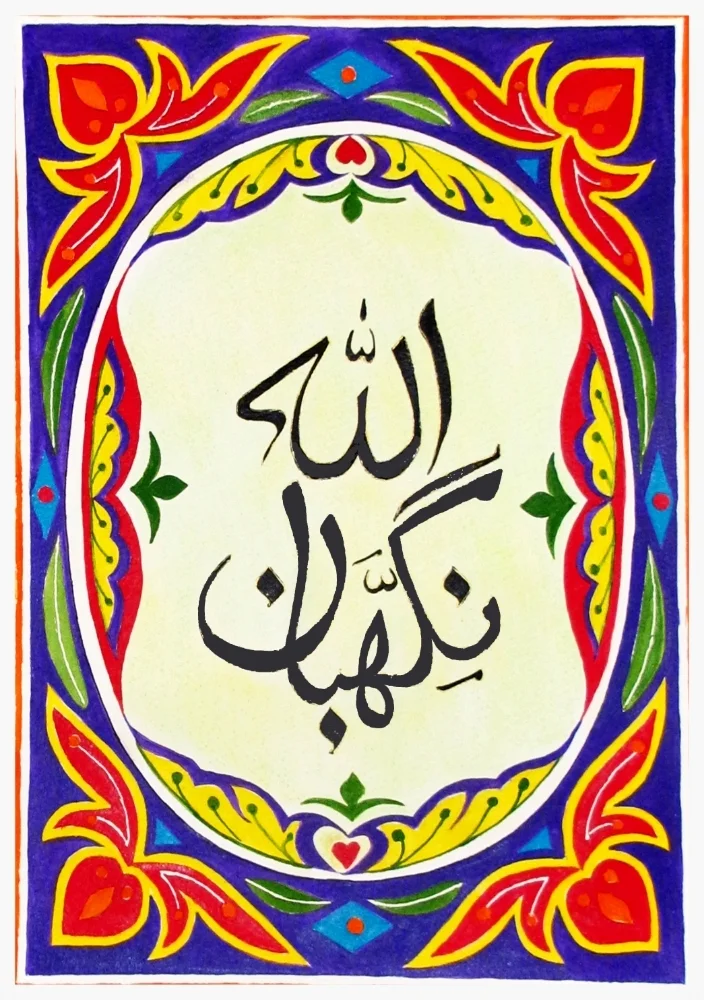 اللہ
نِگہّبان